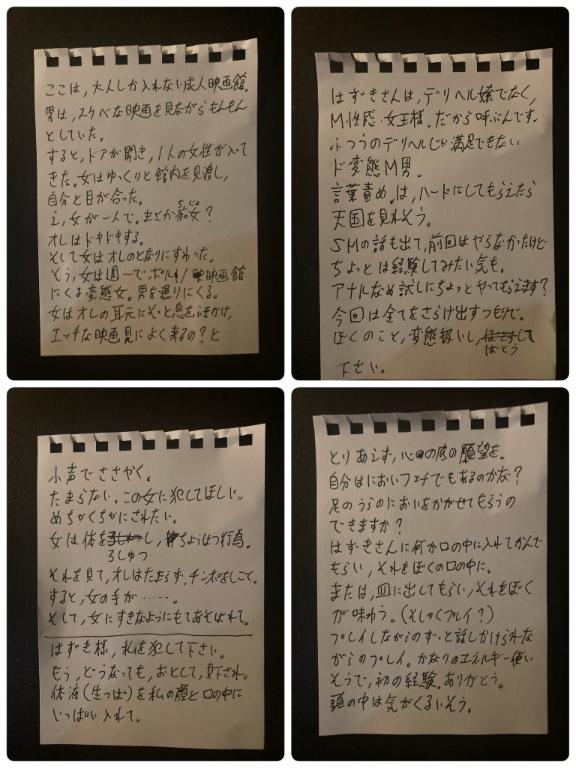 ここは,大人しか入れない成人映画館。
男は,スケベな映画を見ながらもんもん
としていた。
すると,ドアが開き,1人の女性が入って
きた。女はゆっくりと館内を見渡し,
自分と目が合った。
え,女が一人で。まさか痴女?
オレはドキドキする。
そして女はオレのとなりにすわった。
そう,女は週一でポルノ映画館
にくる変態女。男を漁りにくる。
女はオレの耳元にそっと息をふきかけ,
エッチな映画見によく来るの?と
はずきさんは,デリヘル嬢でなく,
M性感・女王様。だから呼ぶんです。
ふつうのデリヘルじゃ満足できない
ド変態M男。
言葉責め。は,ハードにしてもらえたら
天国を見れそう。
SMの話も出て,前回はやらなかったけど
ちょっとは経験してみたい気も。
アナルなめ試しにちょっとやってもらえます?
今回は全てをさらけ出すつもりで。
ぼくのこと,変態扱いし,ばとうして
下さい。
小声でささやく。
たまらない。この女に犯してほしい。
めちゃくちゃにされたい。
女は体をろしゅつし,ちょうはつ行為。
それを見て,オレはたまらず,チンポをしごく。
すると,女の手が……。
そして,女にすきなようにもてあそばれて。
はずき様,私を犯して下さい。
もう,どうなっても,おとして,見下され。
体液(生つば)を私の顔と口の中に
いっぱい入れて。
とりあえず,心の底の願望を。
自分はにおいフェチでもあるのかな?
足のうらのにおいをかがせてもらうの
できますか?
はずきさんに何か口の中に入れてかんで
もらい,それをぼくの口の中に。
または,皿に出してもらい,それをぼく
が味わう。(そしゃくプレイ?)
プレイしながらのずっと話しかけられな
がらのプレイ。かなりのエネルギー使い
そうで,初の経験。ありがとう。
頭の中は気がくるいそう。